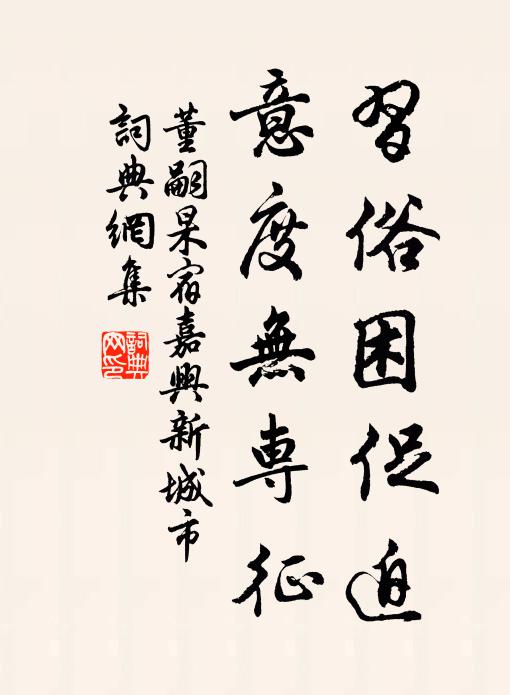 習俗困促迫
意度無專征
董嗣杲宿嘉興新城市
詞典網集
詞典網印